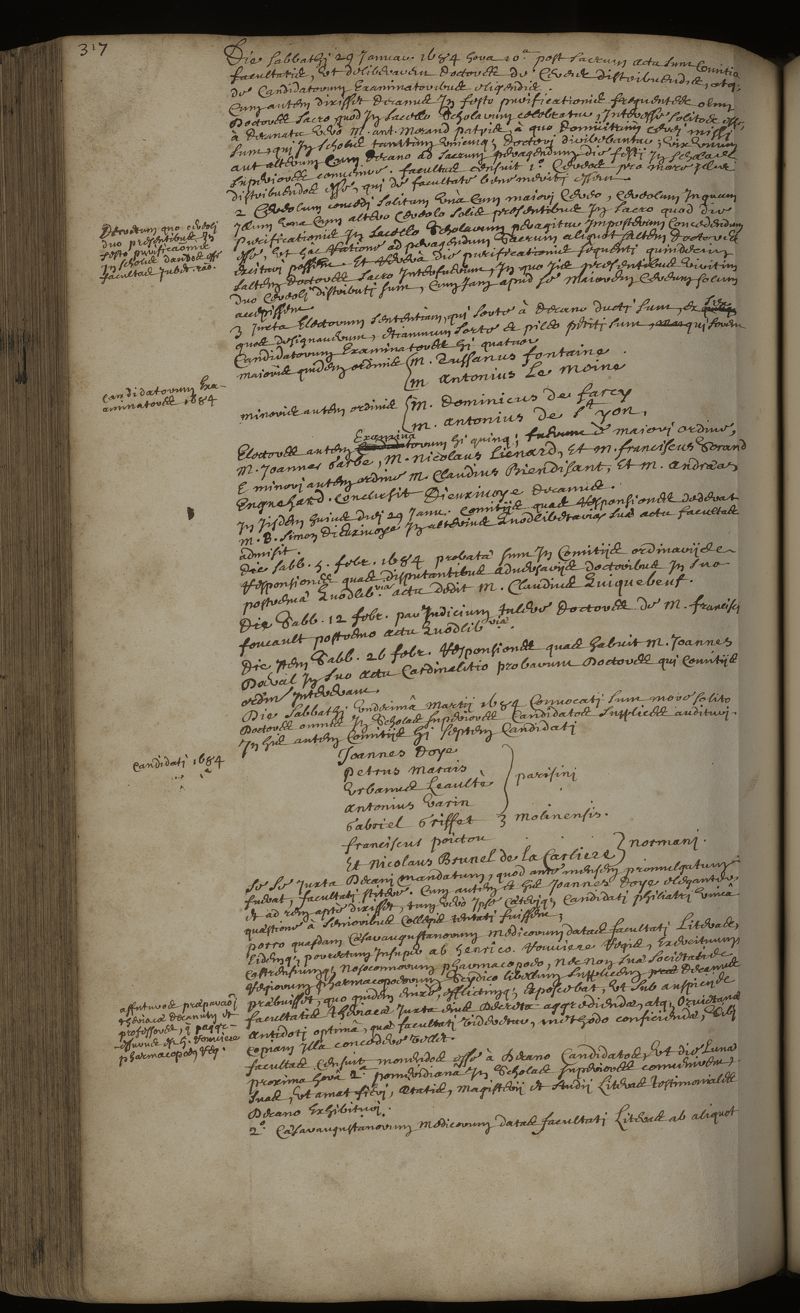 317
Die Sabbathi 29 Januar 1684 hora 10.ª post sacrum acta sunt Comitia
facultatis, ut deliberarent Doctores de Cereis distribuendis, atq;
de Candidatorum Examinatoribus eligendis.
Cum autem dixisset Decanus In festo purificationis frequentes olim
Doctores sacro quod In sacello Scholarum celebratur, Interesse solitos esse,
à Decanatu vero M. ant. Morand patris, à quo
sunt, qui In scholis tantum unicuiq; Doctori
aut alterum cum Decano ad sacrum peragendum die festi In scholas
superiores convenire. facultas censuit 1.º Cereos pro more
distribuendos esse, qui de facultate bene meriti essent
2 Cereolum comedi solitum una cum maiori Cereo, Cereolum Inquam
Illum una cum altero Cereolo solis presentibus In sacro quod die
Purificationis In sacello Scholarum peragitur Imposterum concedendum
esse, ut hac ratione ad peragendum sacrum aliquot saltem Doctores
excitari possent. Et revera die purificationis sequenti quindecim
saltem Doctores sacro Interfuerunt, In quo Iis presentibus
duo Cereoli distributi sunt, cum Iam apud se maiorem Cereum solum
accepissent
3 Iuxta Electorum sententiam, qui sorte à Decano ducti sunt,
quos designaverunt, etiamnum sorte è pileo petiti sunt, qui forent
Candidatorum Examinatores hi quatuor
maioris quidem ordinis M. Tussanus fontaine.
M Antonius Le Moine
minoris autem ordinis M. Dominicus de farcy
M. Antonius de S.t yon,
Electores autem Examinatorum hi quinq; fuerunt è maiori ordine,
M. Joannes Garbe, M. Nicolaus Lienard, Et M. franciscus
E minori autem ordine M. Claudius Guendisant, Et M. Andræas
Enguehard. Conclusit Dieuxivoye Decanus.
In Iisdem huius diei 29 Janu. Comitijs quas Responsiones dederat
M. B. Simon Dieuxivoye In alterius Quodlibetariæ suæ actu facultas
admisit.
Die Sabb. 5. febr. 1684 probatæ sunt In Comitijs ordinarijs
Responsiones quas disputantibus adversarijs Doctoribus In suo
postremæ Quodlib.riæ actu dedit M. Claudius Quiquebeuf.
Die Sabb. 12 febr. par Iudicium tulere Doctores de M. francisci
foucault postremo actu Quodlibria.
Die Item Sabb. 26 febr. Responsiones quas habuit M. Joannes
Daval In suo actu Cardinalitio probarunt Doctores qui Comitijs
ordin Intererant.
Die Sabbathi undecimâ Martij 1684 Convocati sunt more solito
Doctores omnes In Scholas superiores Candidatos supplices audituri.
In his autem Comitijs hi septem Candidati
Joannes Doye
Petrus Marais
Urbanus Leaultè
Antonius Varin
parisini
Gabriel Griffet } molinensis.
franciscus poictou
Et Nicolaus Brunel de la Carliere } normani.
se se Iuxta Decani mandatum, quod ante mensem promulgatum
fuerat, facultati stitere. Cum autem ex his Joannes Doye eleganter
et ad rem apte dixisset, tum vero Ipse ceteriq; Candidati philiatri unica
quæstione à senioribus Collegis tentati fuissent;
porro quasdam Cæsaraugustanorum Medicorum datas facultati Literas,
Eidemq; porrectum Insuper ab henrico. Rouviere Regis, Exercituum
Castrensiumq; Nosocomiorum pharmacopœo, nec non suæ societatis
Regiorum Pharmacopœorum scripto libellum supplicem Decanus
præbuisset, quo quidem enixe, efflictimq; exposcebat, ut sub auspicijs
facultatis theriacæ Iuxta eius Decreta aggrediendæ, atq; Orvietanæ
Antidoti optimâ, quæ facultati videretur, methodo conficiendæ, sibi
copiam illa concedere vellet.
facultas Censuit monendos esse à Decano Candidatos, ut die Lunæ
proxima hora 2.ª pomeridiana In Scholas superiores convenirent,
suas, ut amat fieri, Ætatis, Magisterij et Studij Literas testimoniales
Decano Exhibituri.
2.º Cæsaraugustanorum Medicorum datas facultati Literas ab aliquot
Decretum quo cereoli
duo presentibus In
festo purificationis
In scholis dandos esse
facultas Iubet.
Candidatorum Exa-
aminatores 1684
Candidati 1684
affuturos præparationi
theriacæ Decanum et
professores,
H. Rouviere
pharmacopœi Reg.